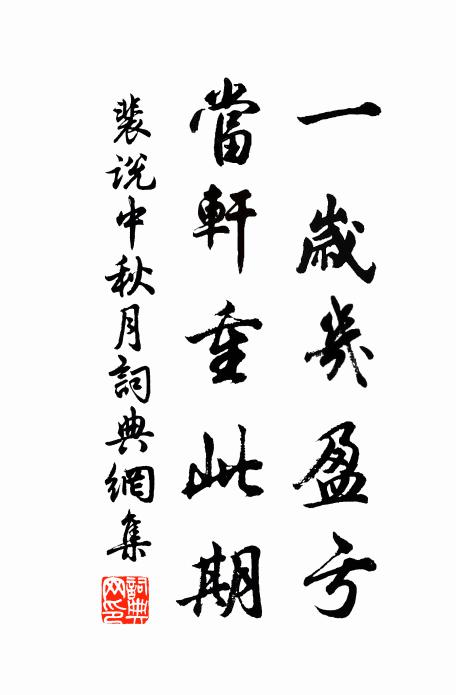 一歲幾盈虧
當軒重此期
裴說中秋月詞典網集
詞典網印